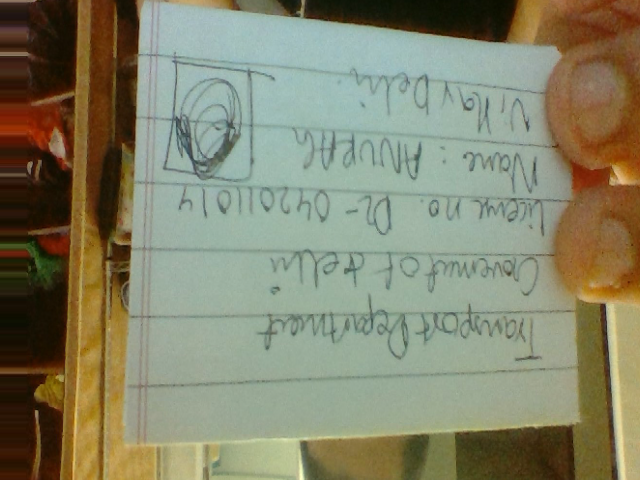 Transport Department
Governent of delhi
Licence no. DL-042011014
Name: ANURAG
Delhi